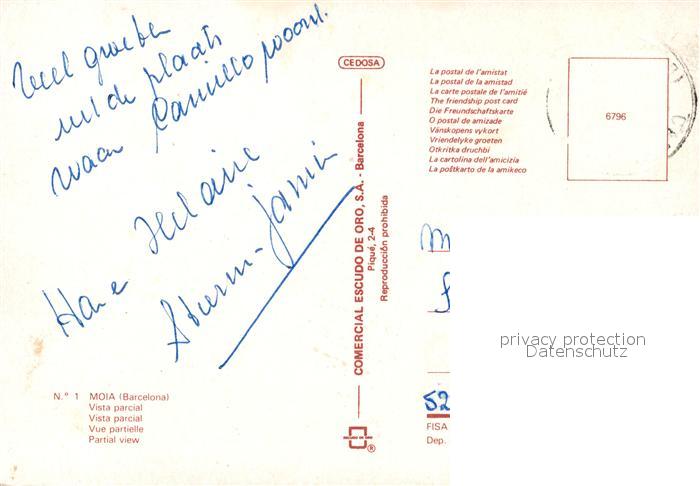 Veel groeten
uit de plaats
waar Camillo woont.
Hélaine
Hane
Sturm-Jasmin
N.° 1 MOIA (Barcelona)
Vista parcial
Vista parcial
Vue partielle
Partial view
CEDOSA
COMERCIAL ESCUDO DE ORO, S.A. - Barcelona
Piqué, 2-4
Reproducción prohibida
®
La postal de l'amistat
La postal de la amistad
La carte postale de l'amitié
The friendship post card
Die Freundschaftskarte
O postal de amizade
Vänskopens vykort
Vriendelyke groeten
Otkritka druchbi
La cartolina dell'amicizia
La poŝtkarto de la amikeco
6796
privacy protection
Datenschutz
52
FISA
Dep.